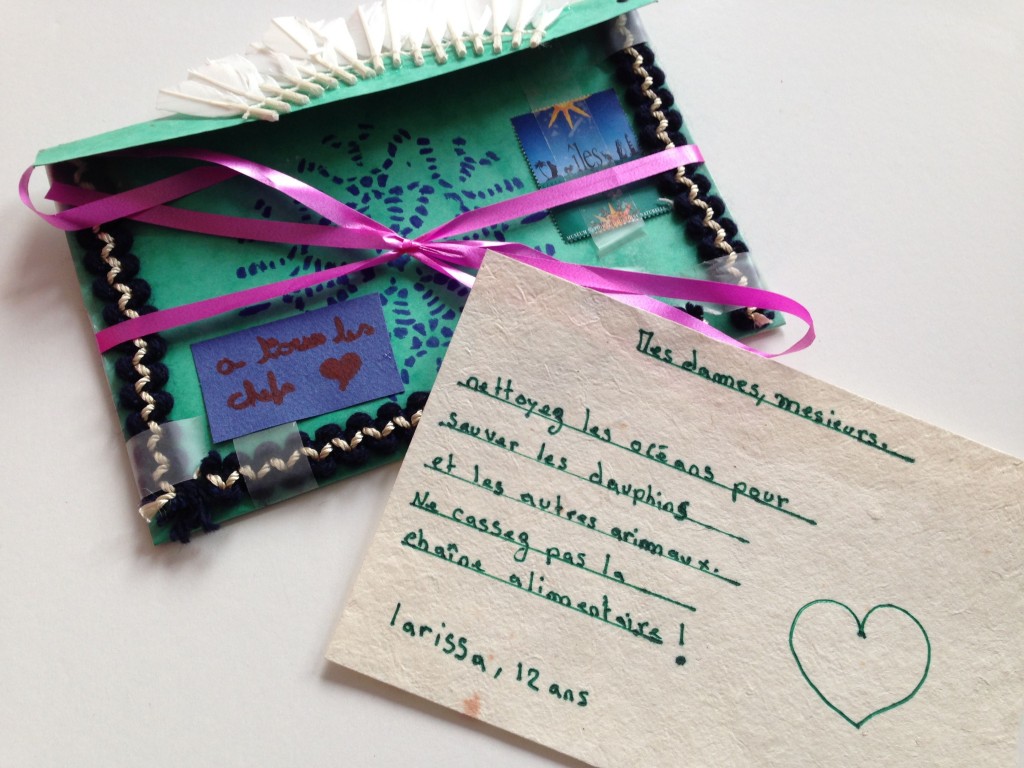 îles
a tous les
chefs
Mes dames, mesieurs.
nettoyez les océans pour
sauver les dauphins
et les autres animaux.
Ne cassez pas la
chaîne alimentaire !
larissa, 12 ans